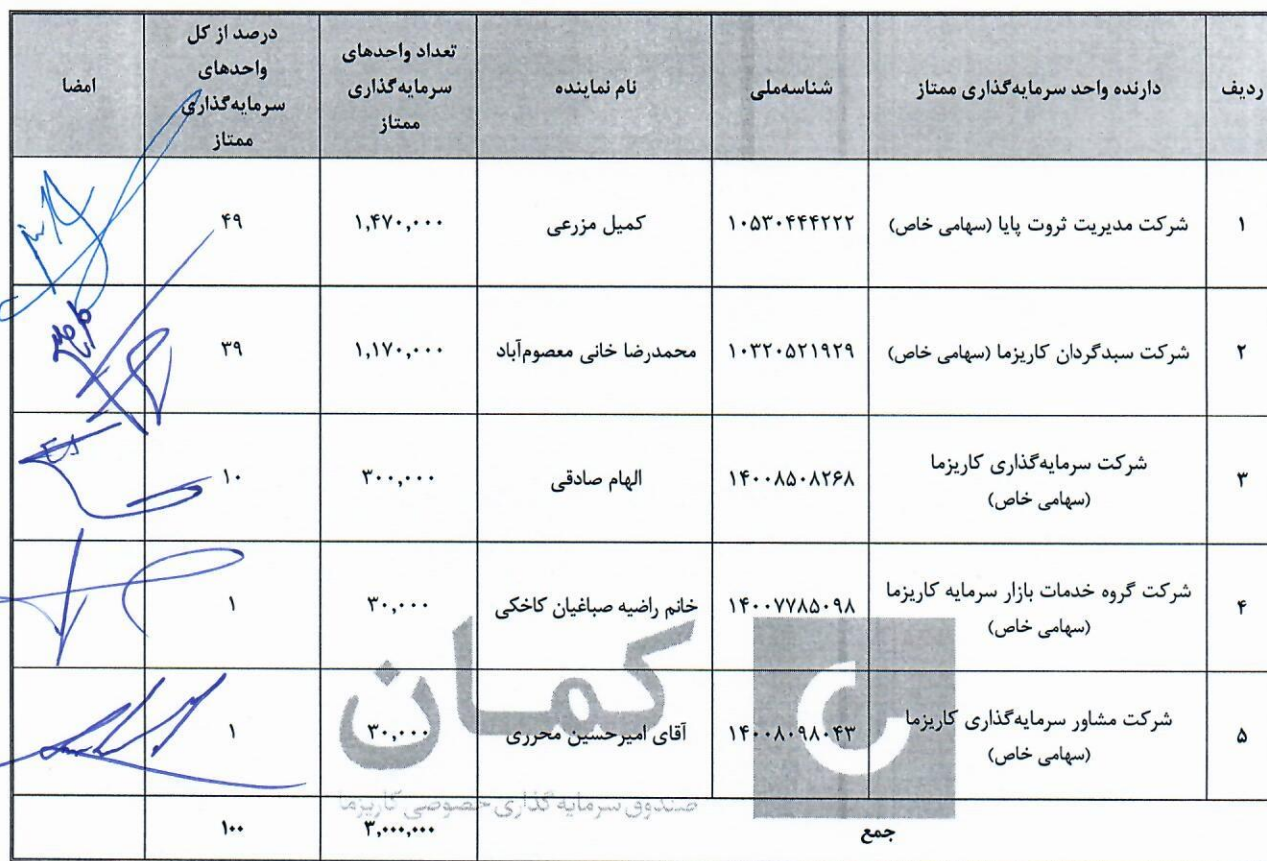 ردیف | دارنده واحد سرمایه‌گذاری ممتاز | شناسه‌ملی | نام نماینده | تعداد واحدهای سرمایه‌گذاری ممتاز | درصد از کل واحدهای سرمایه‌گذاری ممتاز | امضا
۱ | شرکت مدیریت ثروت پایا (سهامی خاص) | ۱۰۵۳۰۴۴۴۲۲۲ | کمیل مزرعی | ۱,۴۷۰,۰۰۰ | ۴۹
۲ | شرکت سبدگردان کاریزما (سهامی خاص) | ۱۰۳۲۰۵۲۱۹۲۹ | محمدرضا خانی معصوم‌آباد | ۱,۱۷۰,۰۰۰ | ۳۹
۳ | شرکت سرمایه‌گذاری کاریزما (سهامی خاص) | ۱۴۰۰۸۵۰۸۲۶۸ | الهام صادقی | ۳۰۰,۰۰۰ | ۱۰
۴ | شرکت گروه خدمات بازار سرمایه کاریزما (سهامی خاص) | ۱۴۰۰۷۷۸۵۰۹۸ | خانم راضیه صباغیان کاخکی | ۳۰,۰۰۰ | ۱
۵ | شرکت مشاور سرمایه‌گذاری کاریزما (سهامی خاص) | ۱۴۰۰۸۰۹۸۰۴۳ | آقای امیرحسین محرری | ۳۰,۰۰۰ | ۱
جمع | ۳,۰۰۰,۰۰۰ | ۱۰۰
کمان
صندوق سرمایه گذاری خصوصی کاریزما